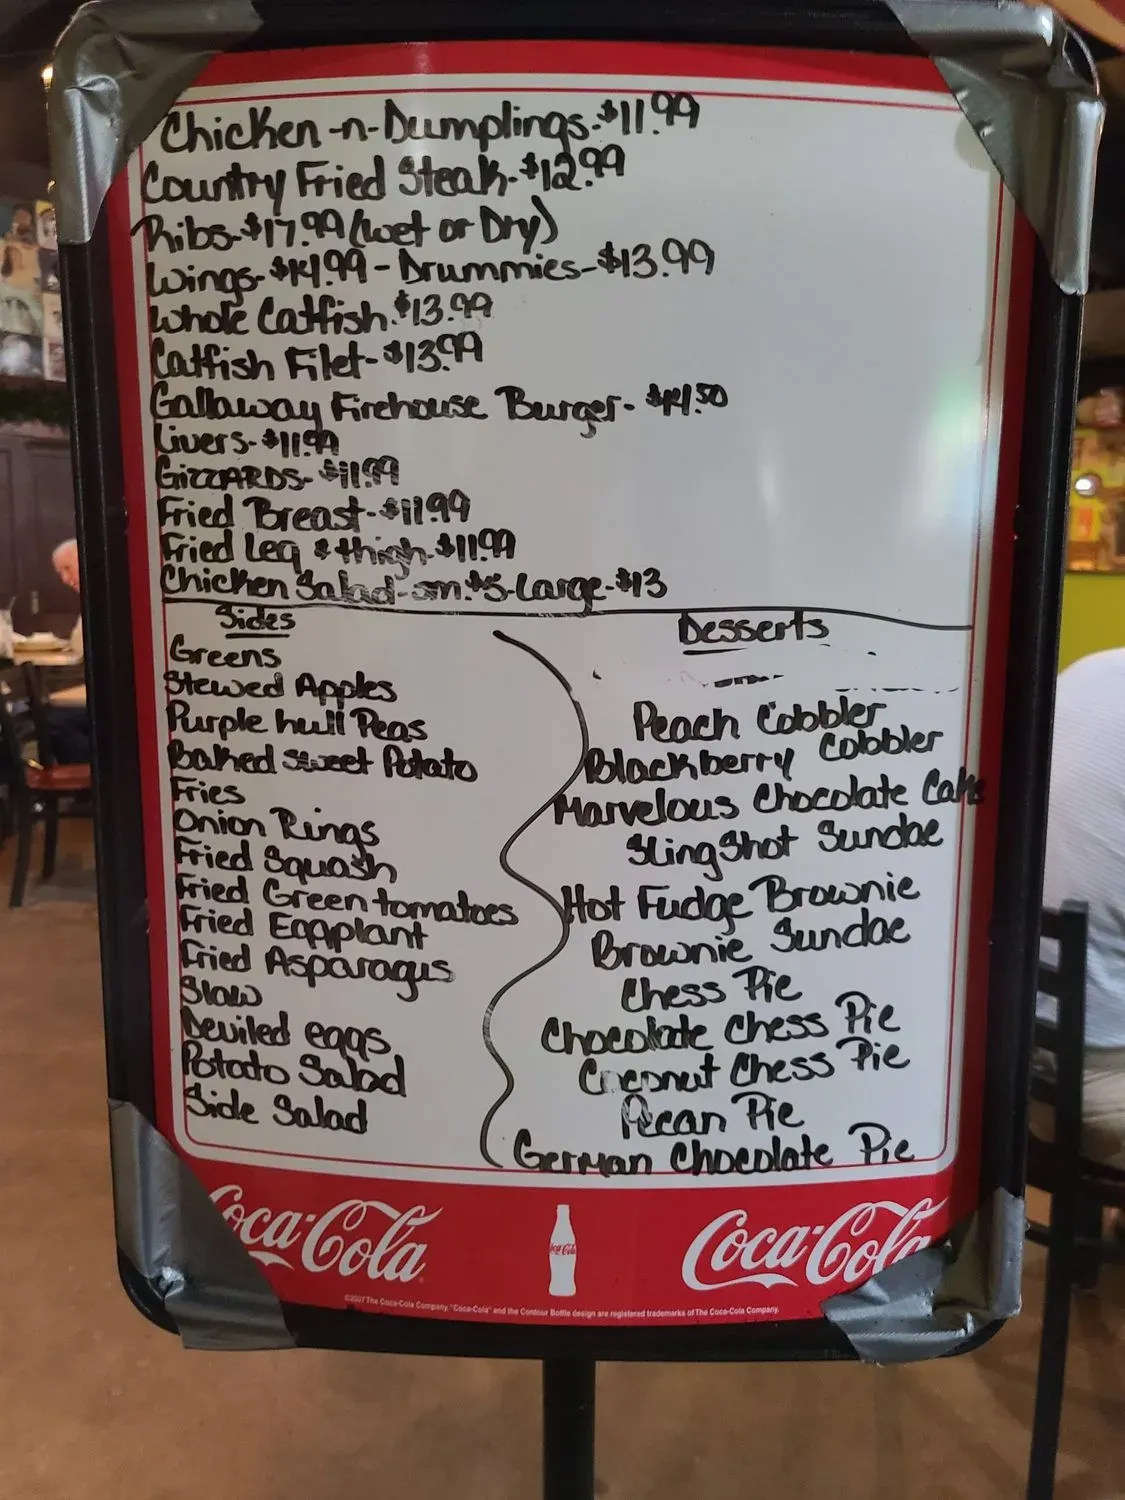 Chicken-n-Dumplings-$11.99
Country Fried Steak-$12.99
Ribs-$17.99 (wet or Dry)
Wings-$14.99 - Drummies-$13.99
Whole Catfish $13.99
Catfish Filet-$13.99
Gallaway Firehouse Burger- $14.50
Livers-$11.99
GIZZARDS-$11.99
Fried Breast-$11.99
Fried Leg & thigh-$11.99
Chicken Salad-sm.$5-Large-$13
Sides
Greens
Stewed Apples
Purple hull Peas
Baked Sweet Potato
Fries
Onion Rings
Fried Squash
Fried Green tomatoes
Fried Eggplant
Fried Asparagus
Slaw
Deviled eggs
Potato Salad
Side Salad
Desserts
Peach Cobbler
Blackberry Cobbler
Marvelous Chocolate Cake
SlingShot Sundae
Hot Fudge Brownie
Brownie Sundae
Chess Pie
Chocolate Chess Pie
Coconut Chess Pie
Pecan Pie
German Chocolate Pie
Coca-Cola
Coca-Cola
Coca-Cola
©2007 The Coca-Cola Company. "Coca-Cola" and the Contour Bottle design are registered trademarks of The Coca-Cola Company.